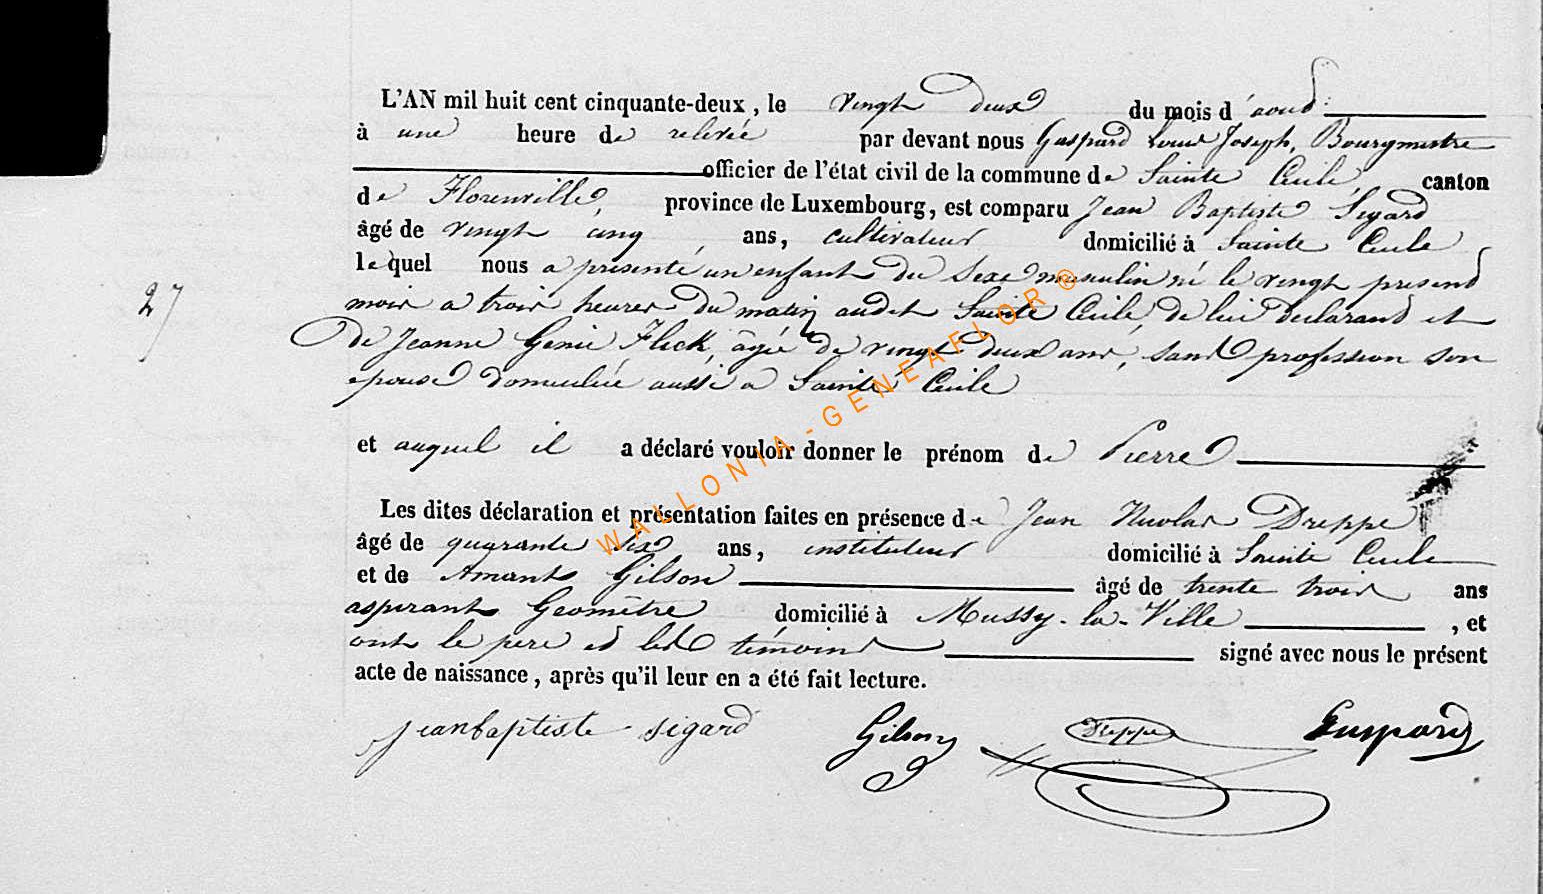 L'AN mil huit cent cinquante-deux, le vingt deux du mois d'aout
à une heure de relevée par devant nous Gaspard Louis Joseph, Bourgmestre
officier de l'état civil de la commune de Sainte Cecile, canton
de Florenville, province de Luxembourg, est comparu Jean Baptiste Sigard
âgé de vingt cinq, ans, cultivateur domicilié à Sainte Cecile
lequel nous a présenté un enfant du Sexe masculin né le vingt présend
27
mois a trois heures du matin audit Sainte Cecile, de lui declarand et
de Jeanne Genie Flick, âgée de vingt deux ans, sans profession son
epouse domiciliée aussi a Sainte Cecile
et auquel il a déclaré vouloir donner le prénom de Pierre
Les dites déclaration et présentation faites en présence de Jean Nicolas Dreppe
âgé de quarante six ans, instituteur domicilié à Sainte Cecile
et de Amant Gilson âgé de trente trois ans
aspirant Geomêtre domicilié à Mussy-la-Ville, et
ont le pere et les témoins signé avec nous le présent
acte de naissance, après qu'il leur en a été fait lecture.
jeanbaptiste sigard Gilson Dreppe Gaspard
WALLONIA-GENEAFLOR®